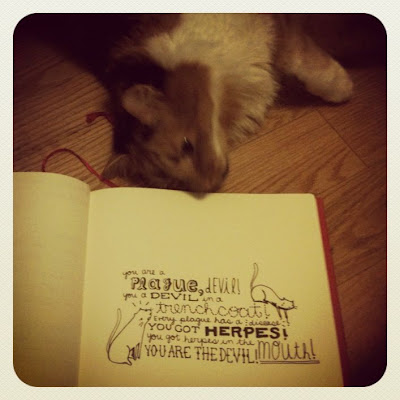 you are a
PLAGUE, dEVIL!
you a DEVIL in a
trenchcoat!
Every plague has a disease;
YOU GOT HERPES!
you got herpes in the
YOU ARE THE DEVIL! mouth!